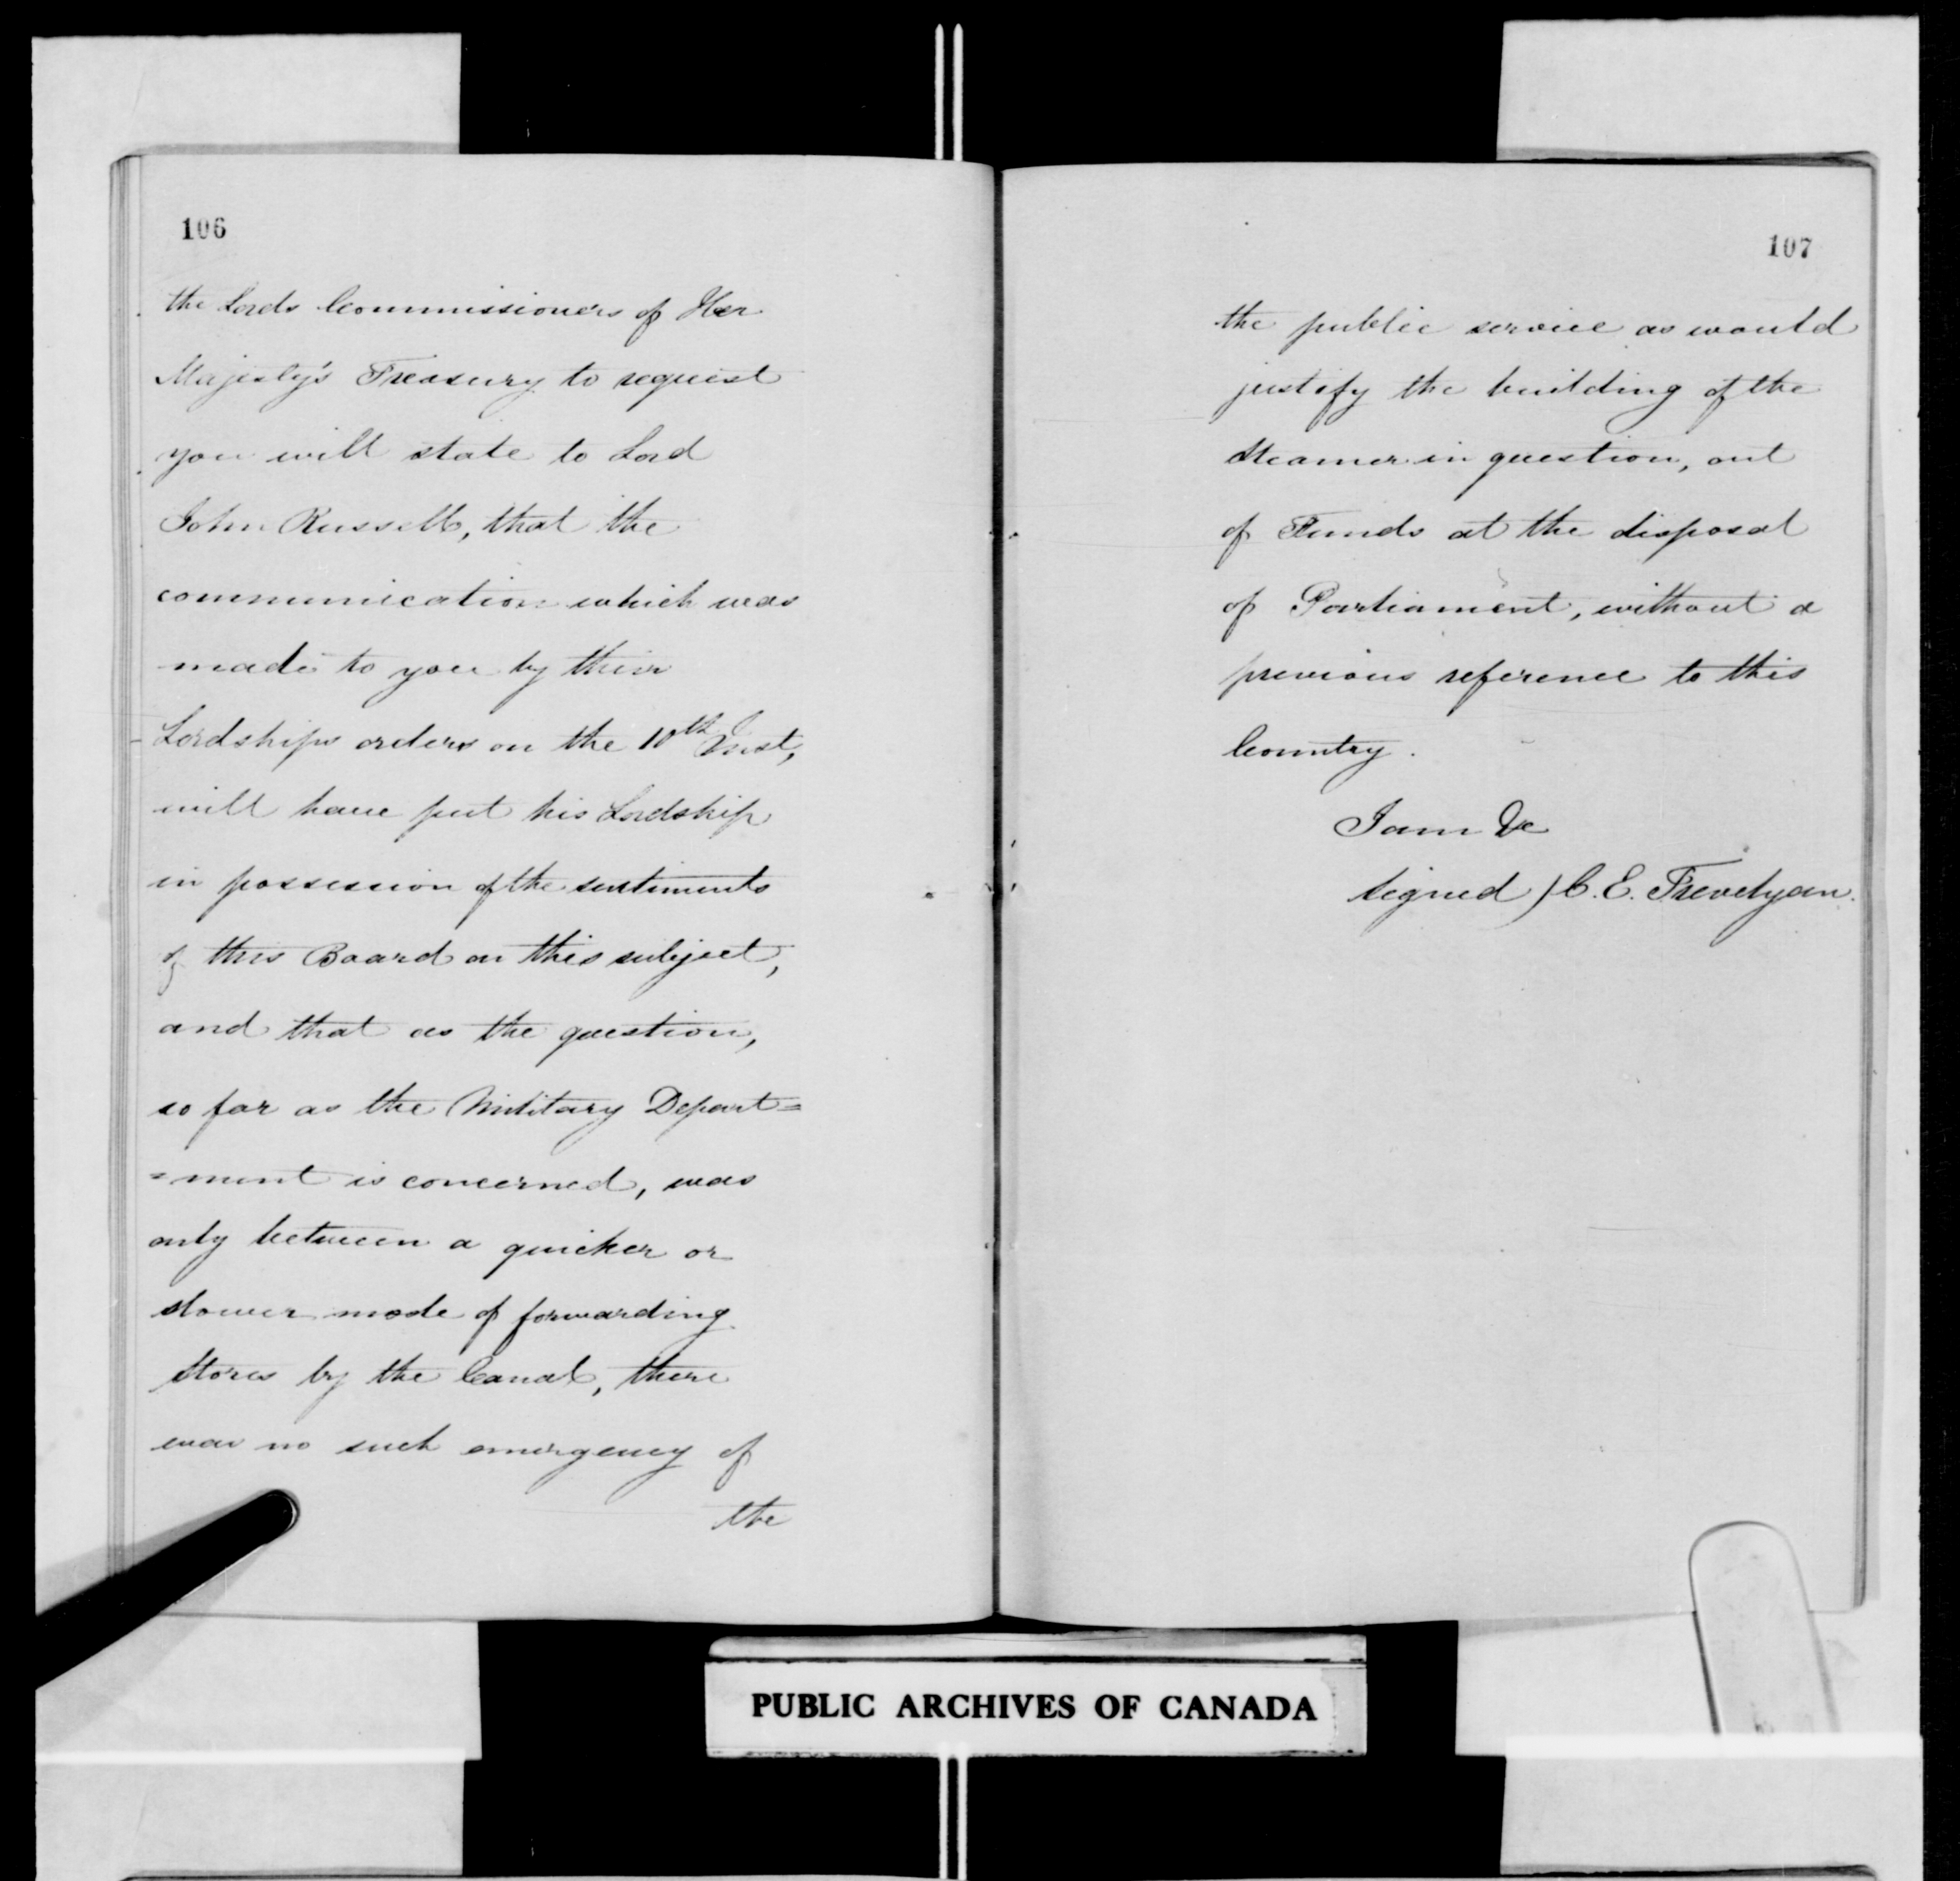 106
the Lords Commissioners of Her
Majesty's Treasury to request
you will state to Lord
John Russell, that the
communication which was
made to you by their
Lordships orders on the 10th Inst,
will have put his Lordship
in possession of the sentiments
of this Board on this subject,
and that as the question,
so far as the Military Depart=
=ment is concerned, was
only between a quicker or
slower mode of forwarding
Stores by the Canal, there
was no such emergency of
the
107
the public service as would
justify the building of the
Steamer in question, out
of Funds at the disposal
of Parliament, without a
previous reference to this
Country.
I am &c
signed) C. E. Trevelyan.
PUBLIC ARCHIVES OF CANADA